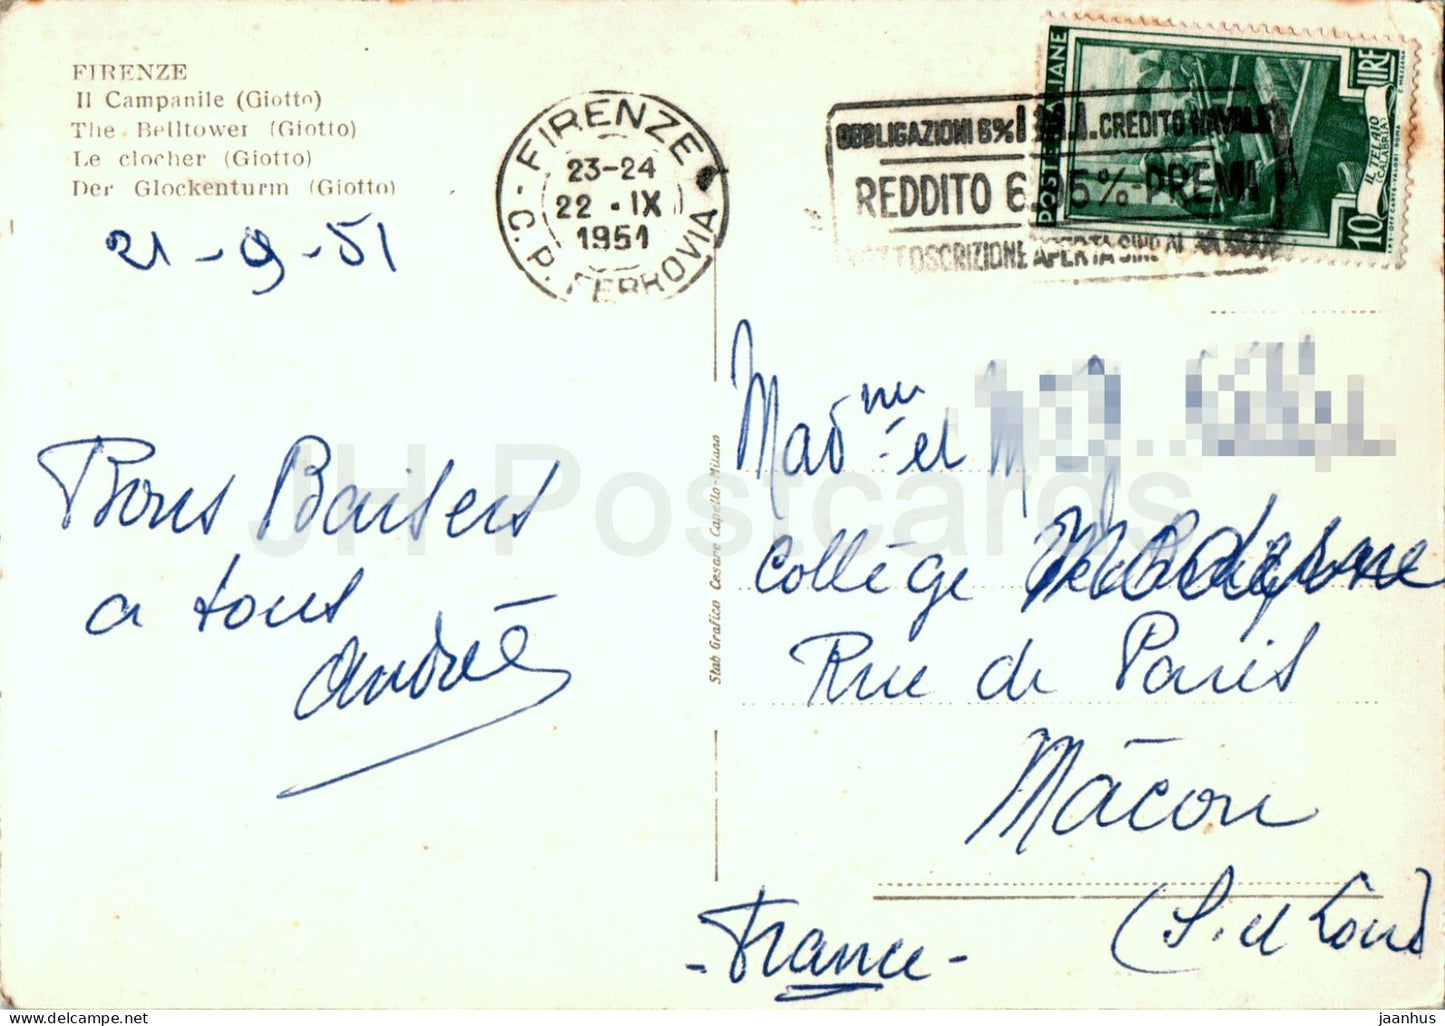 FIRENZE
Il Campanile (Giotto)
The Belltower (Giotto)
Le clocher (Giotto)
Der Glockenturm (Giotto)
21-9-51
FIRENZE
C.P. FERROVIA
23-24
22 · IX
1951
OBBLIGAZIONI 6% I.M.I. CREDITO NAVALE
REDDITO 6. 5%-PREMI
SOTTOSCRIZIONE APERTA SINO AL
POSTE ITALIANE
10 LIRE
IL TELAIO
(CALABRIA)
Bons Baisers
a tous
André
Stab Grafico Cesare Capello-Milano
Madme et M
Collège Moderne
Rue de Paris
Mâcon
(S. et Loire)
- France -
JH Postcards
delcampe.net
jaanhus